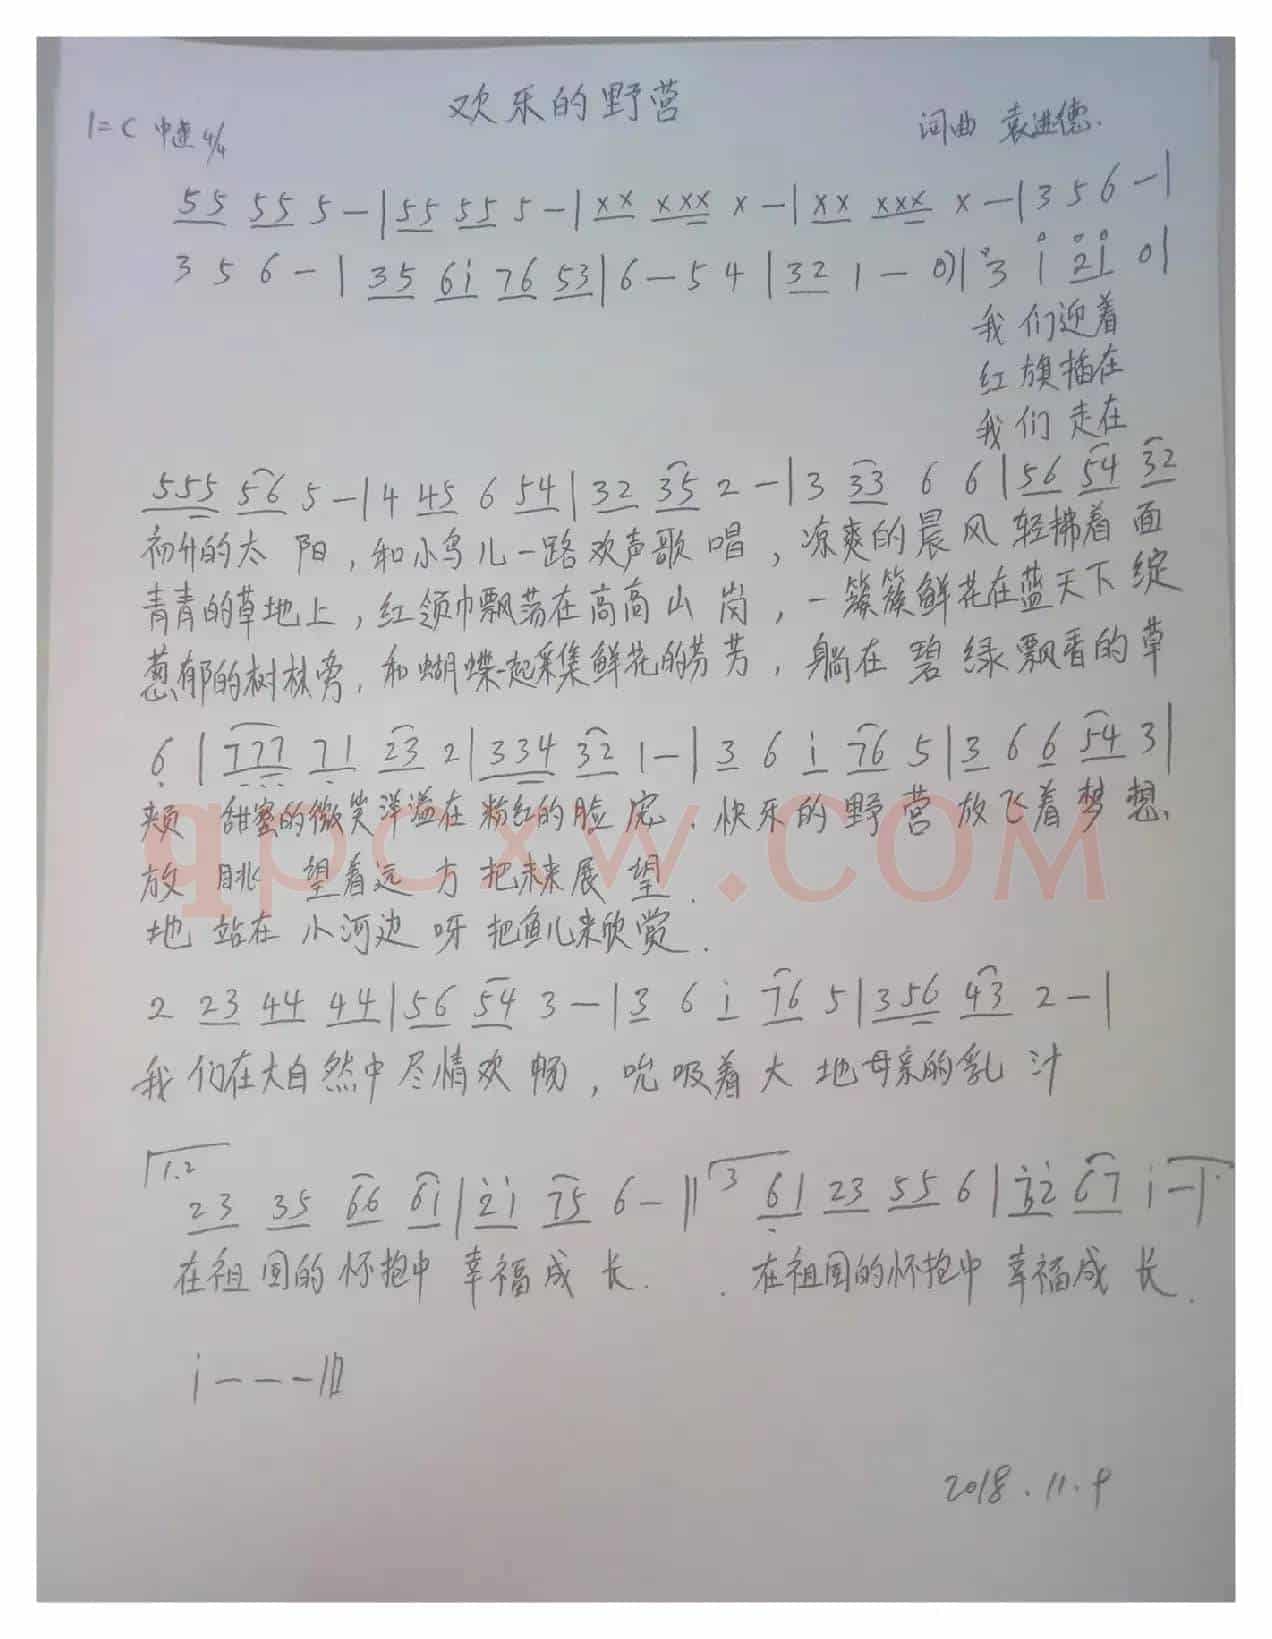 欢乐的野营
1=C 中速 4/4
词曲 袁进德.
55 55 5 — | 55 55 5 — | xx xxx x — | xx xxx x — | 3 5 6 — |
3 5 6 — | 35 6i 76 53 | 6 — 5 4 | 32 1 — 0) | 3 i 2i 0 |
我们迎着
红旗插在
我们走在
555 56 5 — | 4 45 6 54 | 32 35 2 — | 3 33 6 6 | 56 54 32
初升的太阳，和小鸟儿一路欢声歌唱，凉爽的晨风轻拂着面
青青的草地上，红领巾飘荡在高高山岗，一簇簇鲜花在蓝天下绽
葱郁的树林旁，和蝴蝶一起采集鲜花的芬芳，躺在碧绿飘香的草
6 | 777 71 23 2 | 334 32 1 — | 3 6 i 76 5 | 3 6 6 54 3 |
颊 甜蜜的微笑洋溢在粉红的脸庞．快乐的野营放飞着梦想、
放 眺望着远方把未来展望．
地 站在小河边呀把鱼儿来欣赏．
2 23 44 44 | 56 54 3 — | 3 6 i 76 5 | 356 43 2 — |
我们在大自然中尽情欢畅，吮吸着大地母亲的乳汁
1.2 23 35 66 61 | 2i 75 6 — || 3 61 23 55 6 | 32 67 i — |
在祖国的怀抱中幸福成长．在祖国的怀抱中幸福成长．
i — — — ||
2018.11.9
qpcxw.com